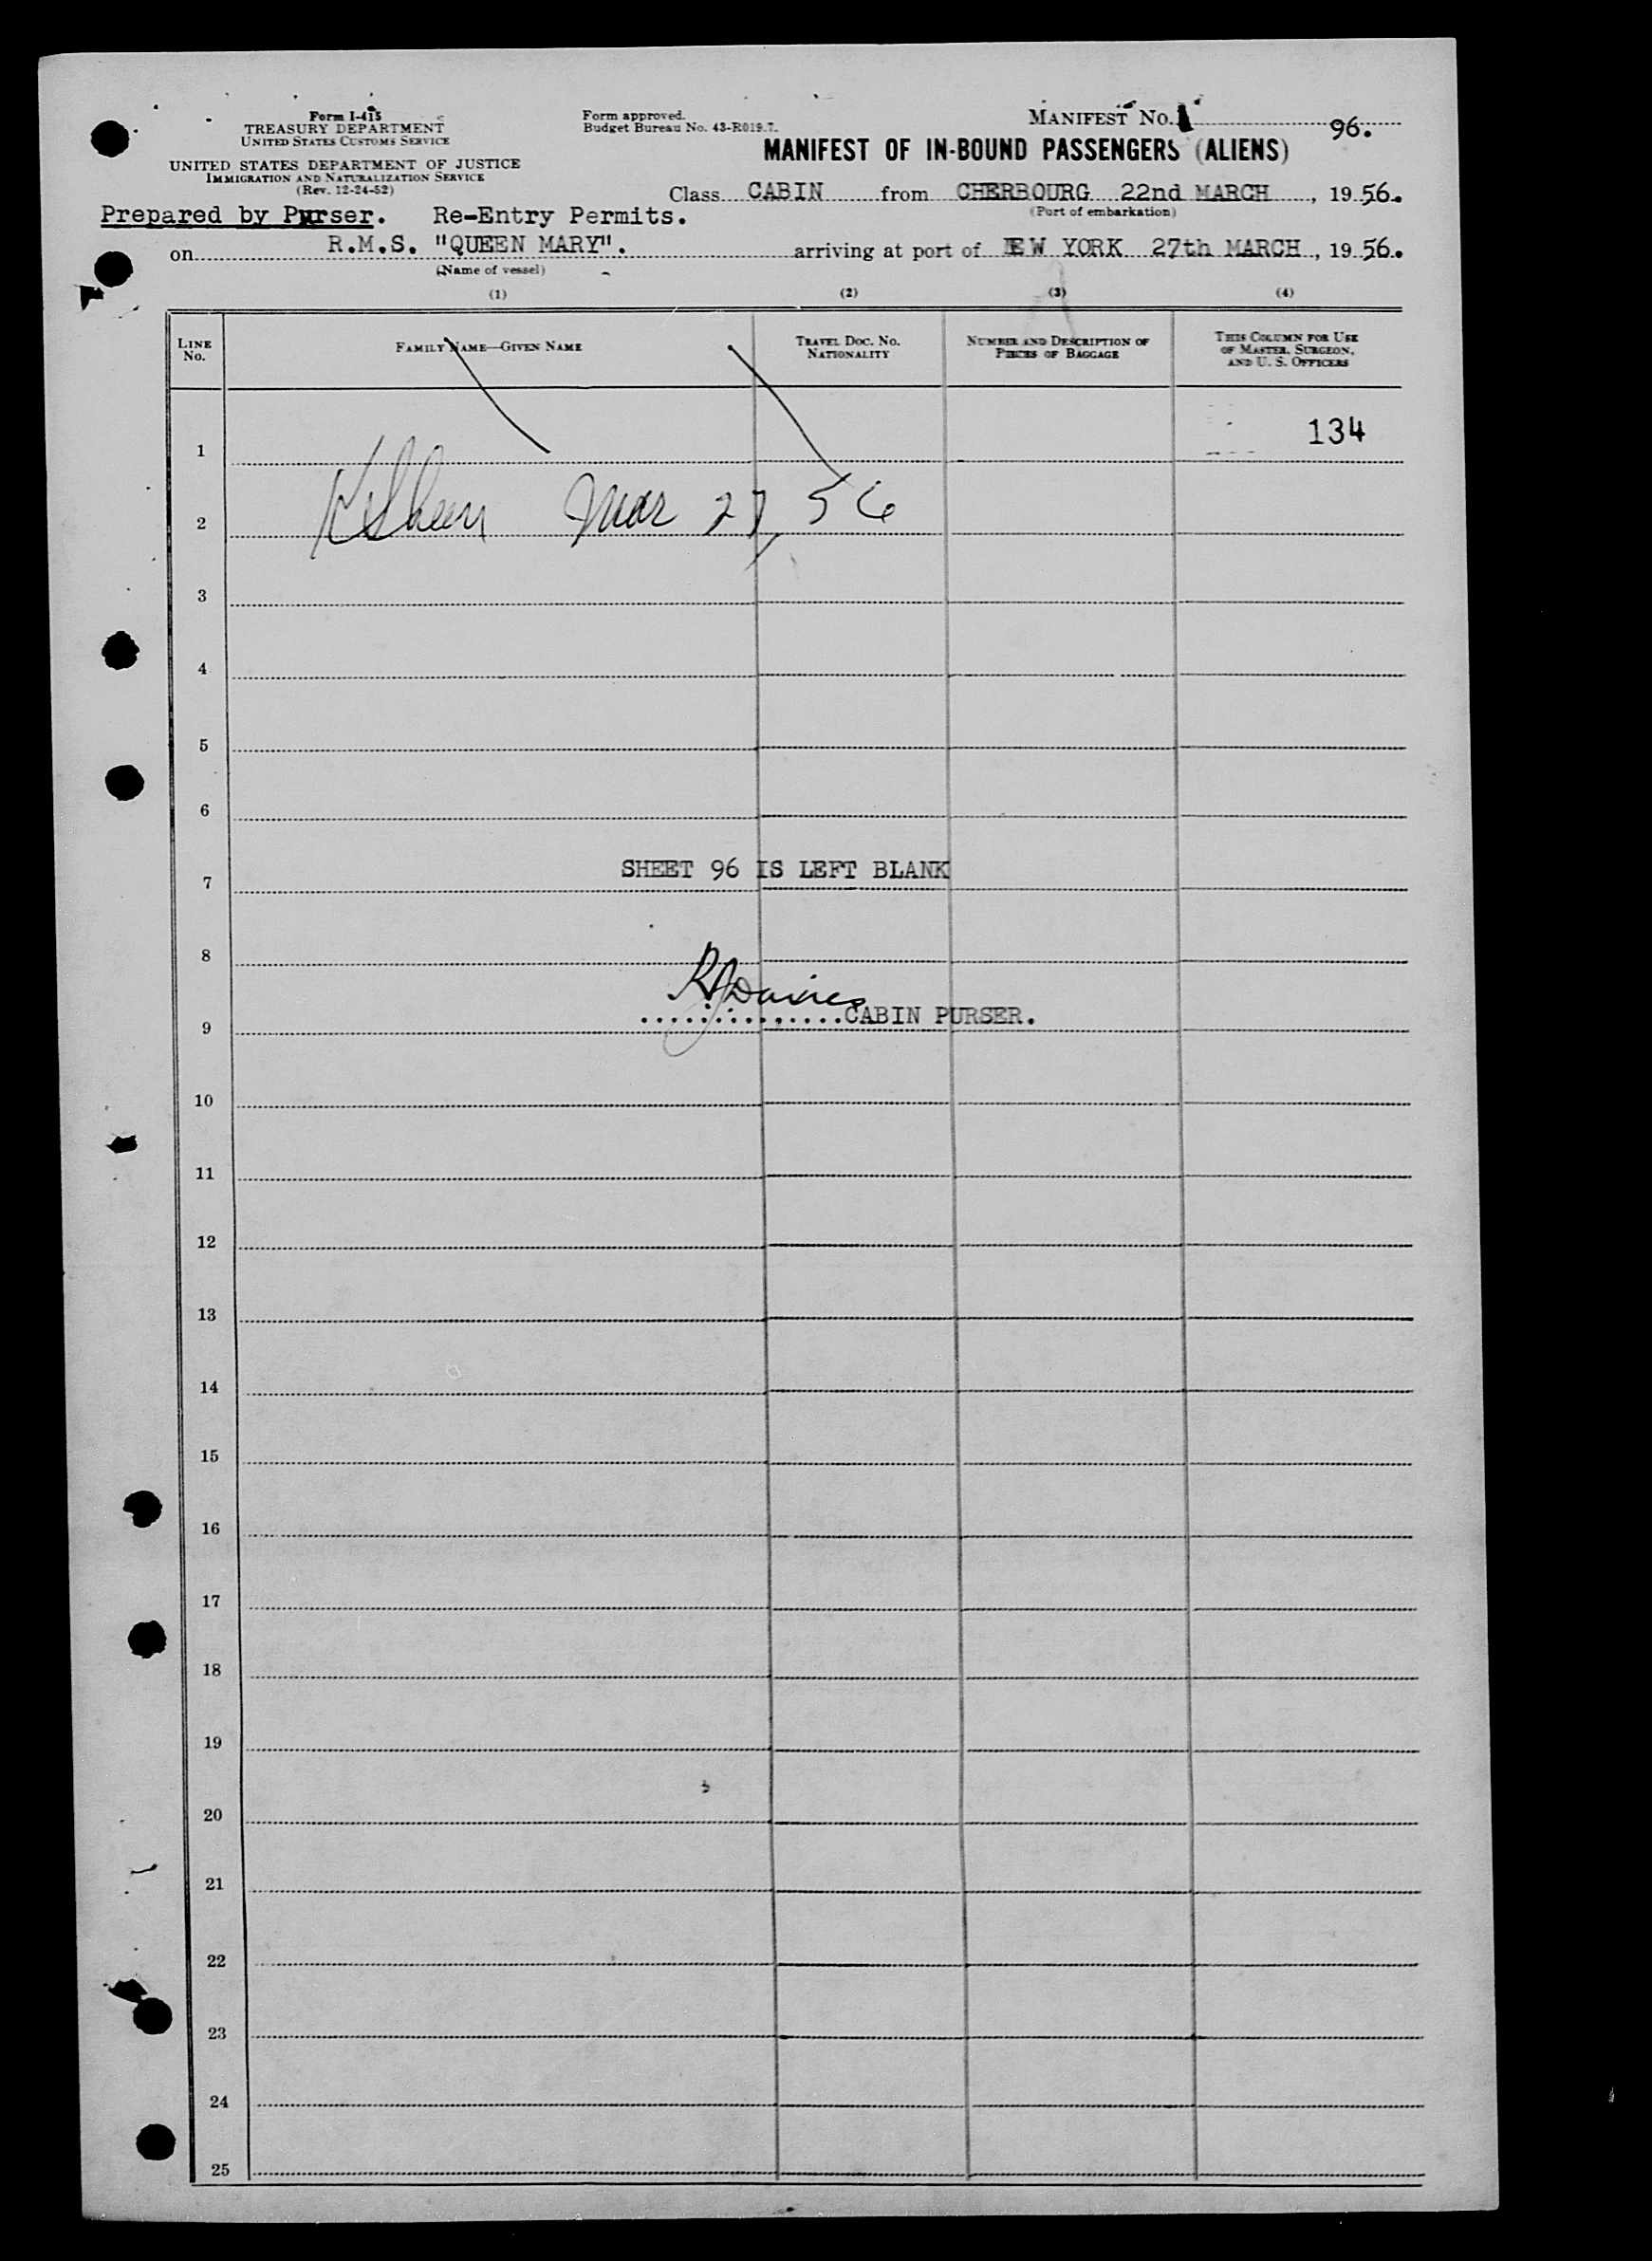 Form I-415
TREASURY DEPARTMENT
UNITED STATES CUSTOMS SERVICE
UNITED STATES DEPARTMENT OF JUSTICE
IMMIGRATION AND NATURALIZATION SERVICE
(Rev. 12-24-52)
Form approved.
Budget Bureau No. 43-R019.7.
MANIFEST No. 96.
MANIFEST OF IN-BOUND PASSENGERS (ALIENS)
Class CABIN from CHERBOURG 22nd MARCH, 1956.
(Port of embarkation)
Prepared by Purser. Re-Entry Permits.
on R.M.S. "QUEEN MARY". arriving at port of EW YORK 27th MARCH, 1956.
(Name of vessel)
(1) (2) (3) (4)
LINE No. FAMILY NAME—GIVEN NAME TRAVEL DOC. No. NATIONALITY NUMBER AND DESCRIPTION OF PIECES OF BAGGAGE THIS COLUMN FOR USE OF MASTER, SURGEON, AND U. S. OFFICERS
1 134
2 Mar 27, 56
3
4
5
6
7 SHEET 96 IS LEFT BLANK
8
9 Davies CABIN PURSER.
10
11
12
13
14
15
16
17
18
19
20
21
22
23
24
25